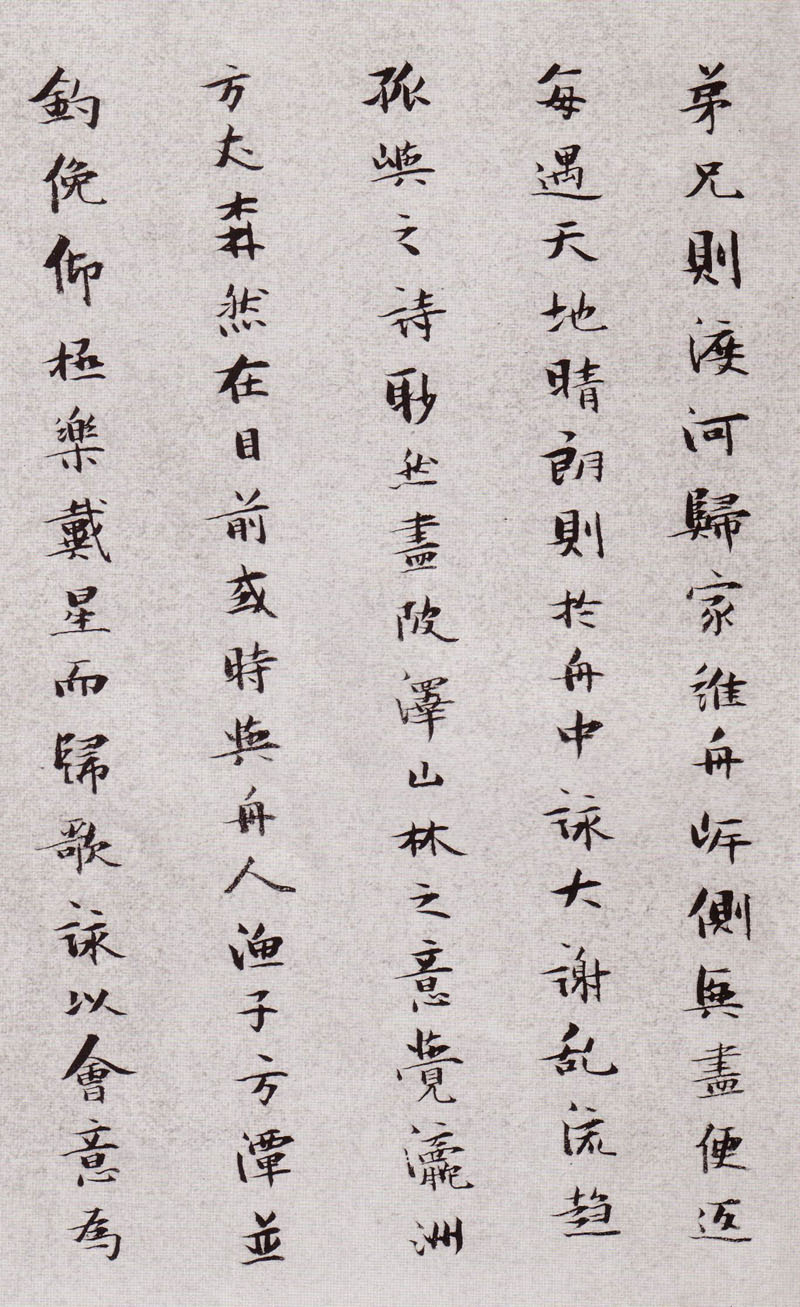 弟兄則渡河歸家維舟岸側興盡便返
每遇天地晴朗則於舟中詠大謝乱流趋
孤嶼之詩眇然盡陂澤山林之意覺瀛洲
方丈森然在目前或時與舟人漁子方潭並
釣俛仰極樂戴星而歸歌詠以會意為